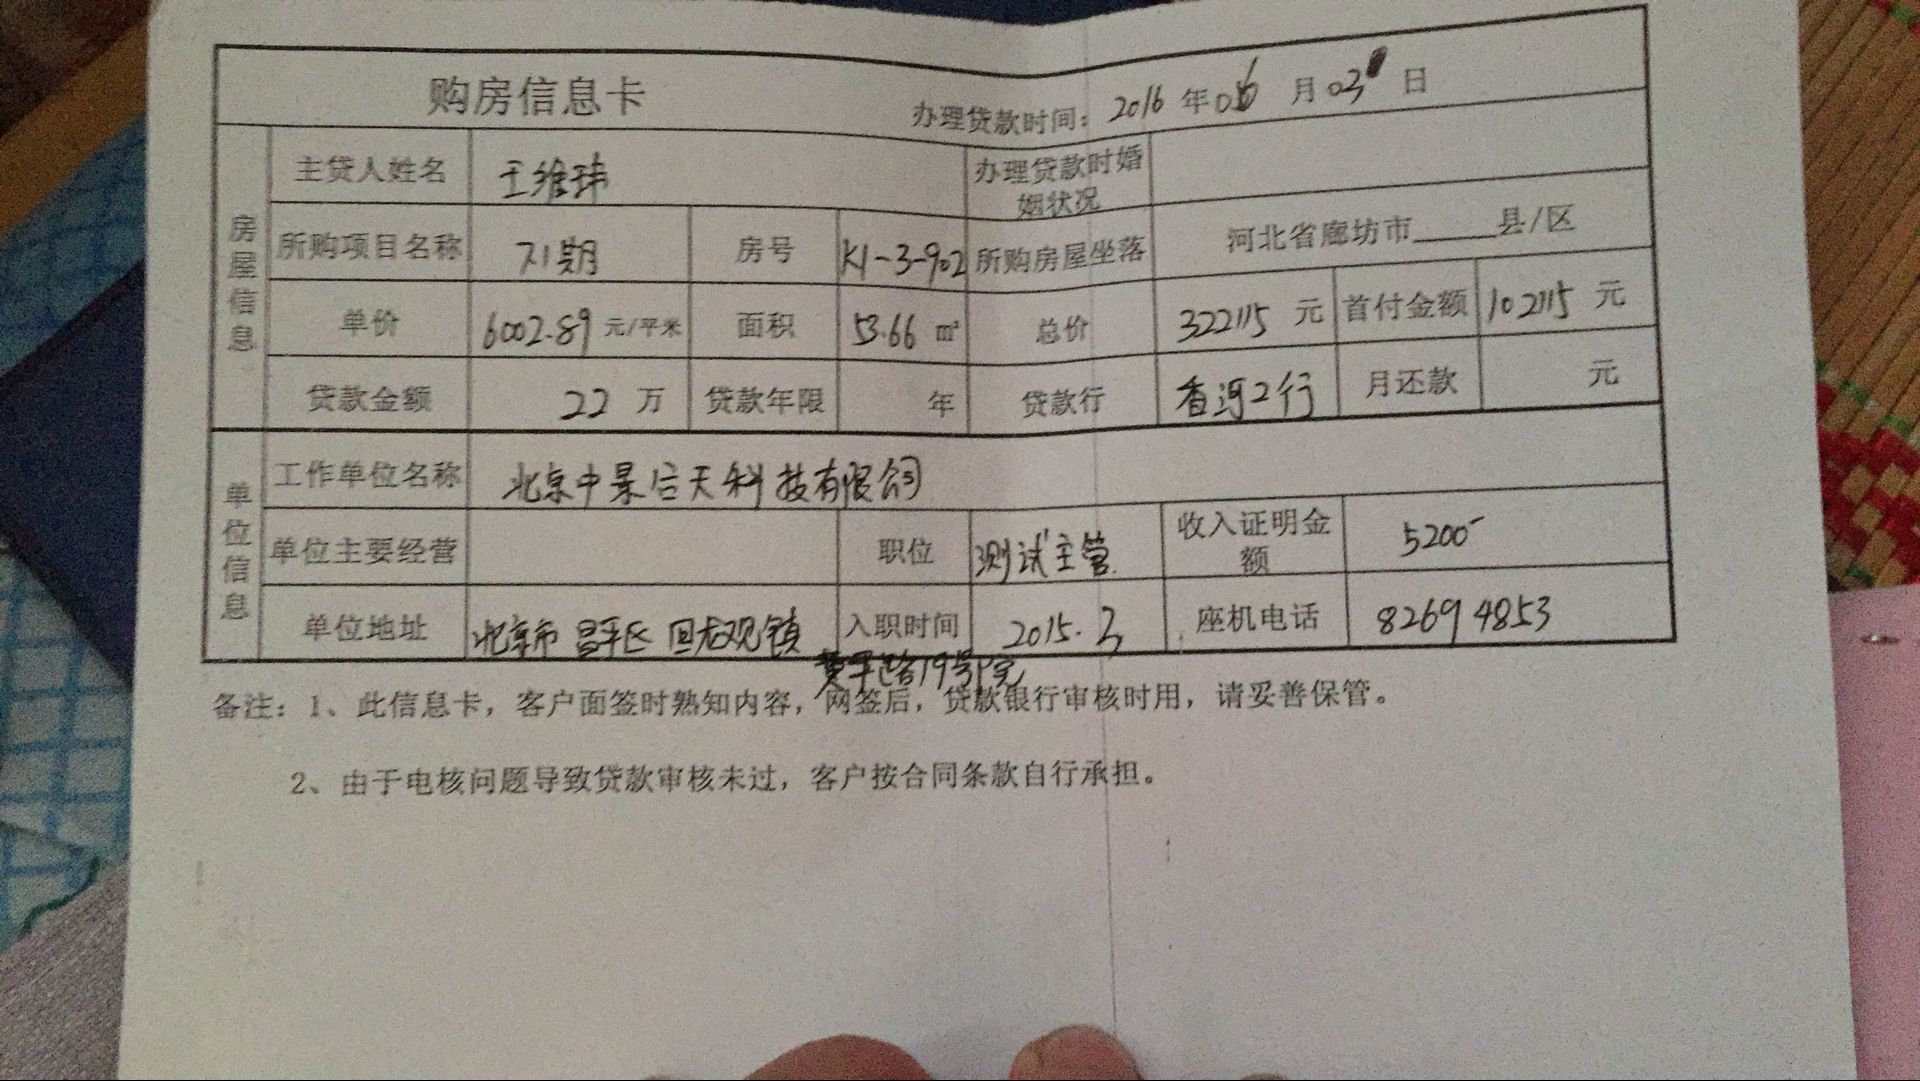 购房信息卡 办理贷款时间: 2016 年 06 月 03 日
房屋信息
主贷人姓名 王维玮 办理贷款时婚姻状况
所购项目名称 刀期 房号 K1-3-902 所购房屋坐落 河北省廊坊市_____县/区
单价 6002.89 元/平米 面积 53.66 m² 总价 322115 元 首付金额 102115 元
贷款金额 22 万 贷款年限 年 贷款行 香河工行 月还款 元
单位信息
工作单位名称 北京中景信天科技有限公司
单位主要经营 职位 测试主管 收入证明金额 5200
单位地址 北京市昌平区回龙观镇 入职时间 2015.3 座机电话 82694853
黄平路19号院
备注: 1、此信息卡，客户面签时熟知内容，网签后，贷款银行审核时用，请妥善保管。
2、由于电核问题导致贷款审核未过，客户按合同条款自行承担。